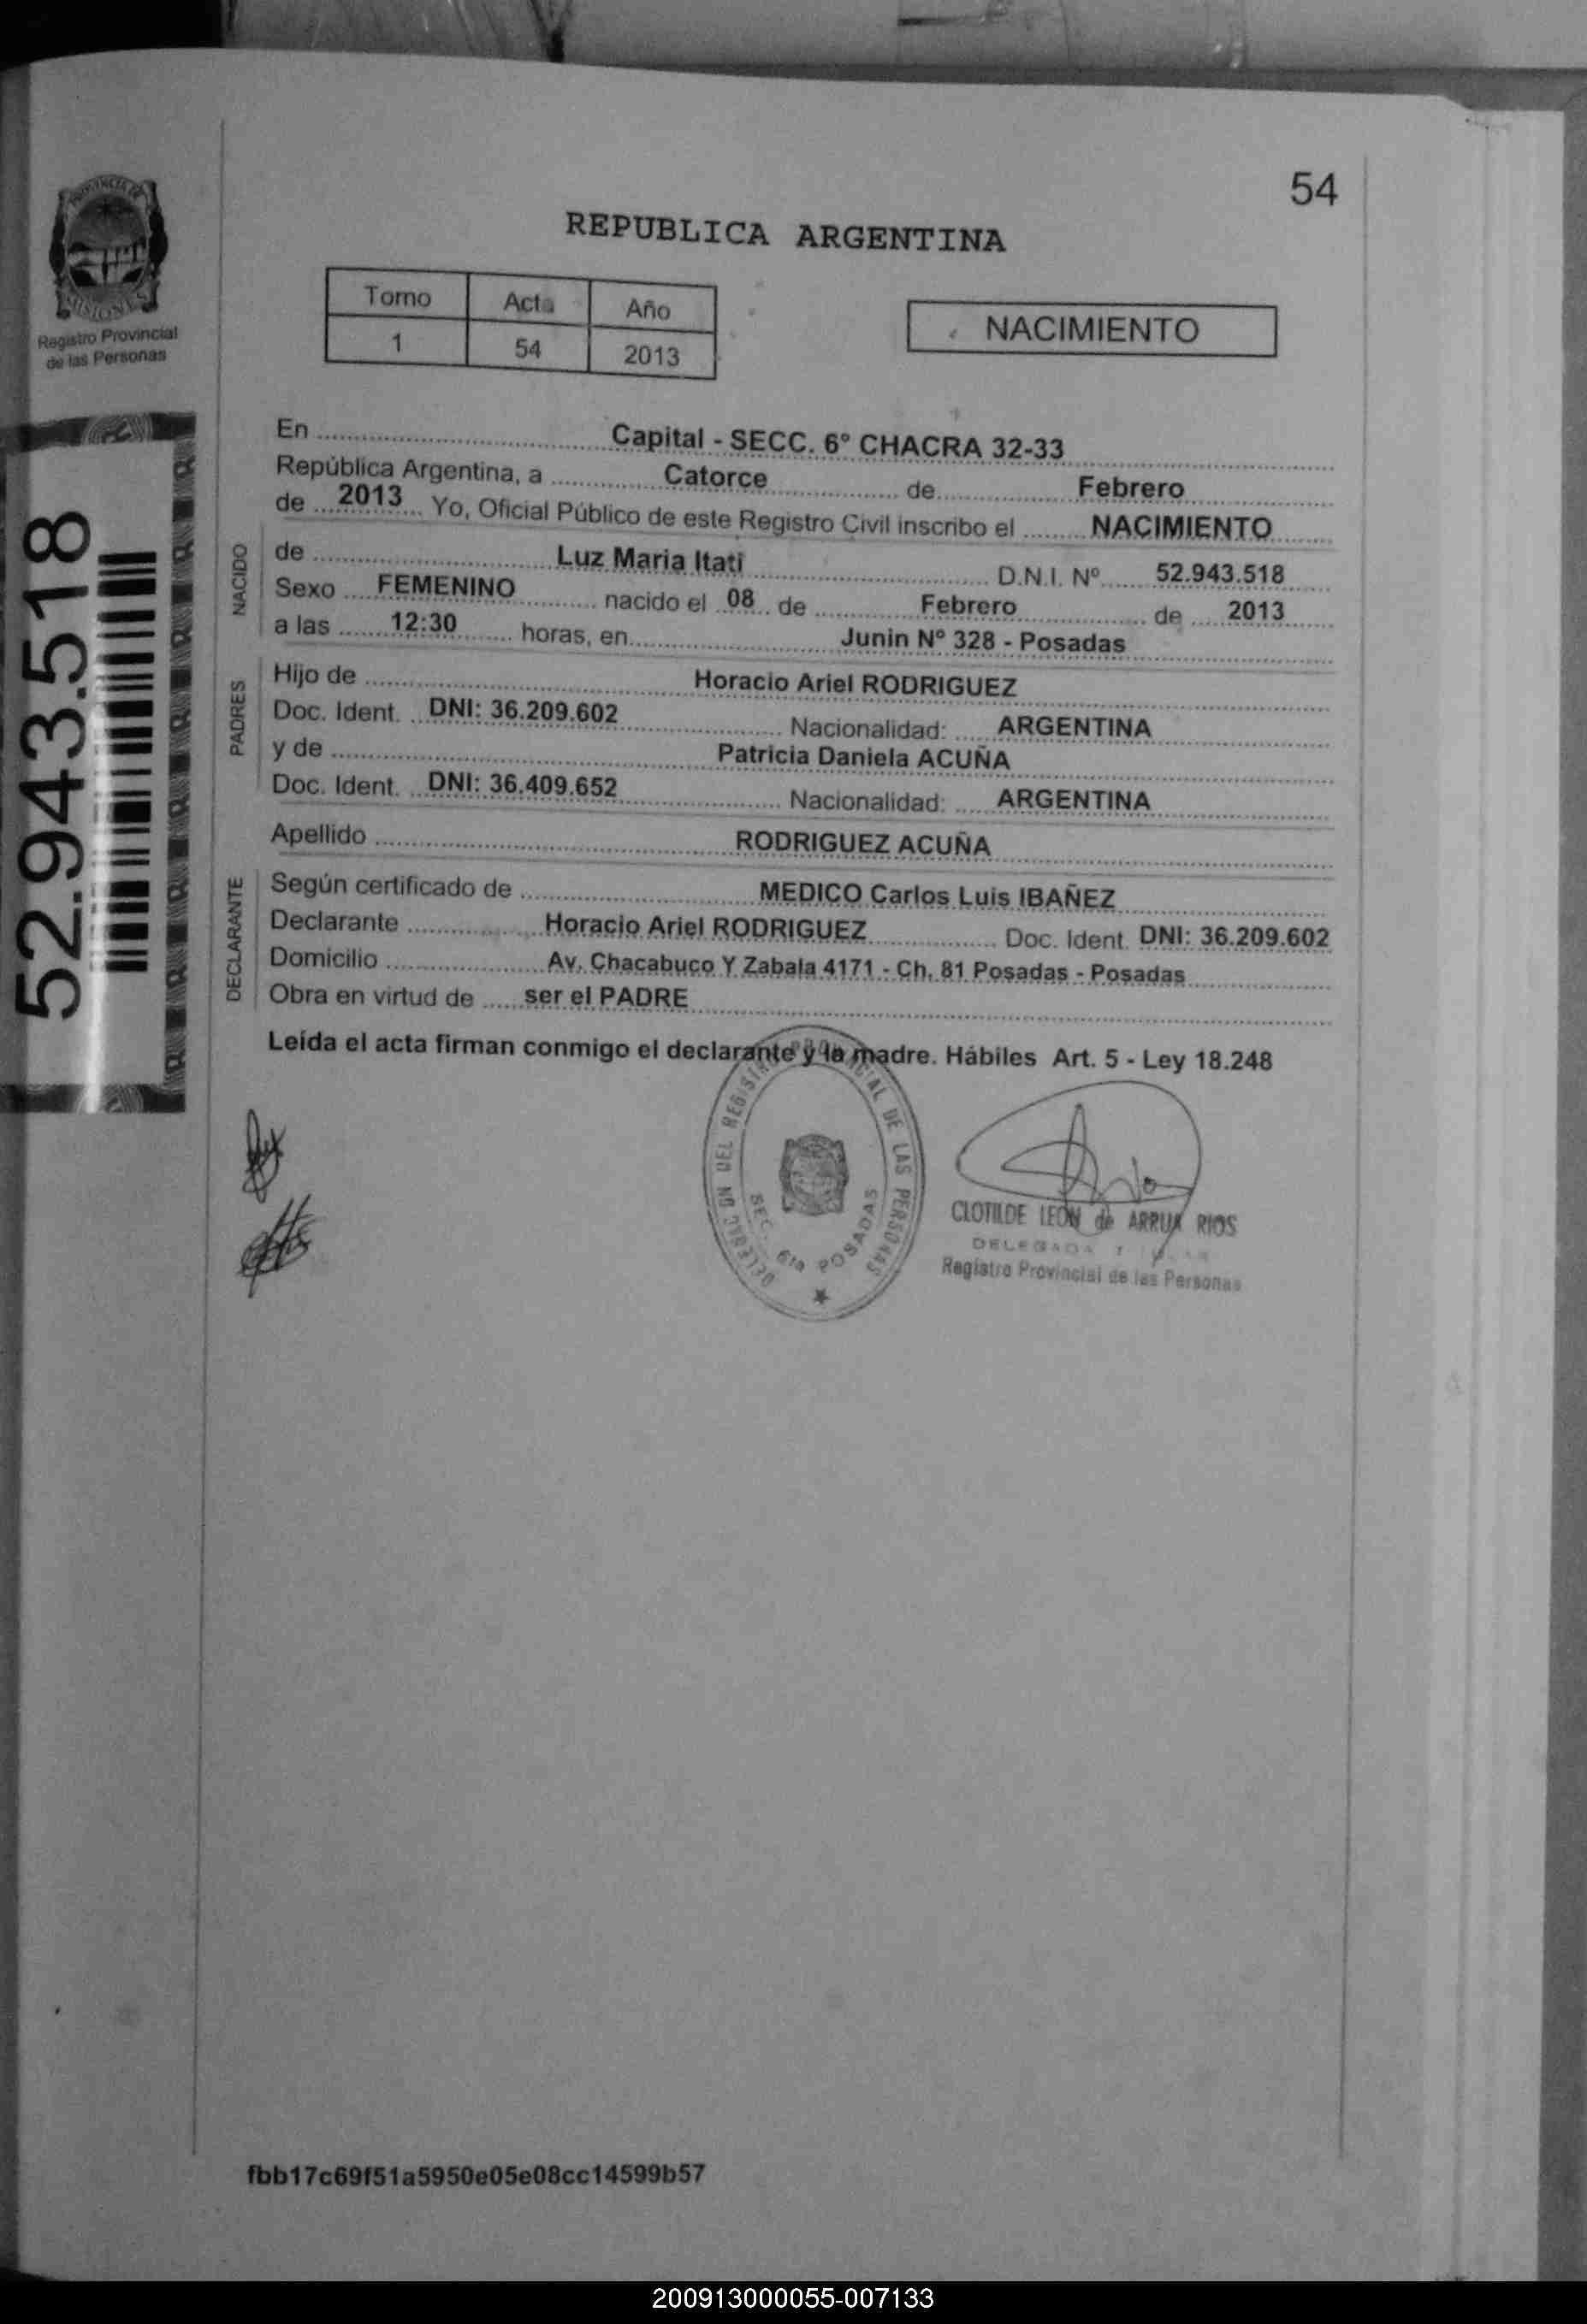 54
REPUBLICA ARGENTINA
Registro Provincial
de las Personas
Tomo Acta Año
1 54 2013
NACIMIENTO
52.943.518
En Capital - SECC. 6° CHACRA 32-33
República Argentina, a Catorce de Febrero
de 2013 Yo, Oficial Público de este Registro Civil inscribo el NACIMIENTO
NACIDO
de Luz Maria Itati D.N.I. Nº 52.943.518
Sexo FEMENINO nacido el 08 de Febrero de 2013
a las 12:30 horas, en Junin Nº 328 - Posadas
PADRES
Hijo de Horacio Ariel RODRIGUEZ
Doc. Ident. DNI: 36.209.602 Nacionalidad: ARGENTINA
y de Patricia Daniela ACUÑA
Doc. Ident. DNI: 36.409.652 Nacionalidad: ARGENTINA
Apellido RODRIGUEZ ACUÑA
DECLARANTE
Según certificado de MEDICO Carlos Luis IBAÑEZ
Declarante Horacio Ariel RODRIGUEZ Doc. Ident. DNI: 36.209.602
Domicilio Av. Chacabuco Y Zabala 4171 - Ch. 81 Posadas - Posadas
Obra en virtud de ser el PADRE
Leída el acta firman conmigo el declarante y la madre. Hábiles Art. 5 - Ley 18.248
DEL REGISTRO DE LAS PERSONAS
SEC. 6ta POSADAS
CLOTILDE LEON de ARRUA RIOS
DELEGADA
Registro Provincial de las Personas
fbb17c69f51a5950e05e08cc14599b57
200913000055-007133